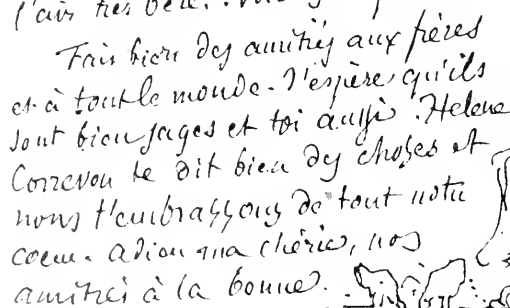 l'air très bête.
Fais bien des amitiés aux frères
et à tout le monde. J'espère qu'ils
sont bien sages et toi aussi. Helene
Correvon te dit bien des choses et
nous t'embrassons de tout notre
coeur. adieu ma chérie, nos
amitiés à la bonne.